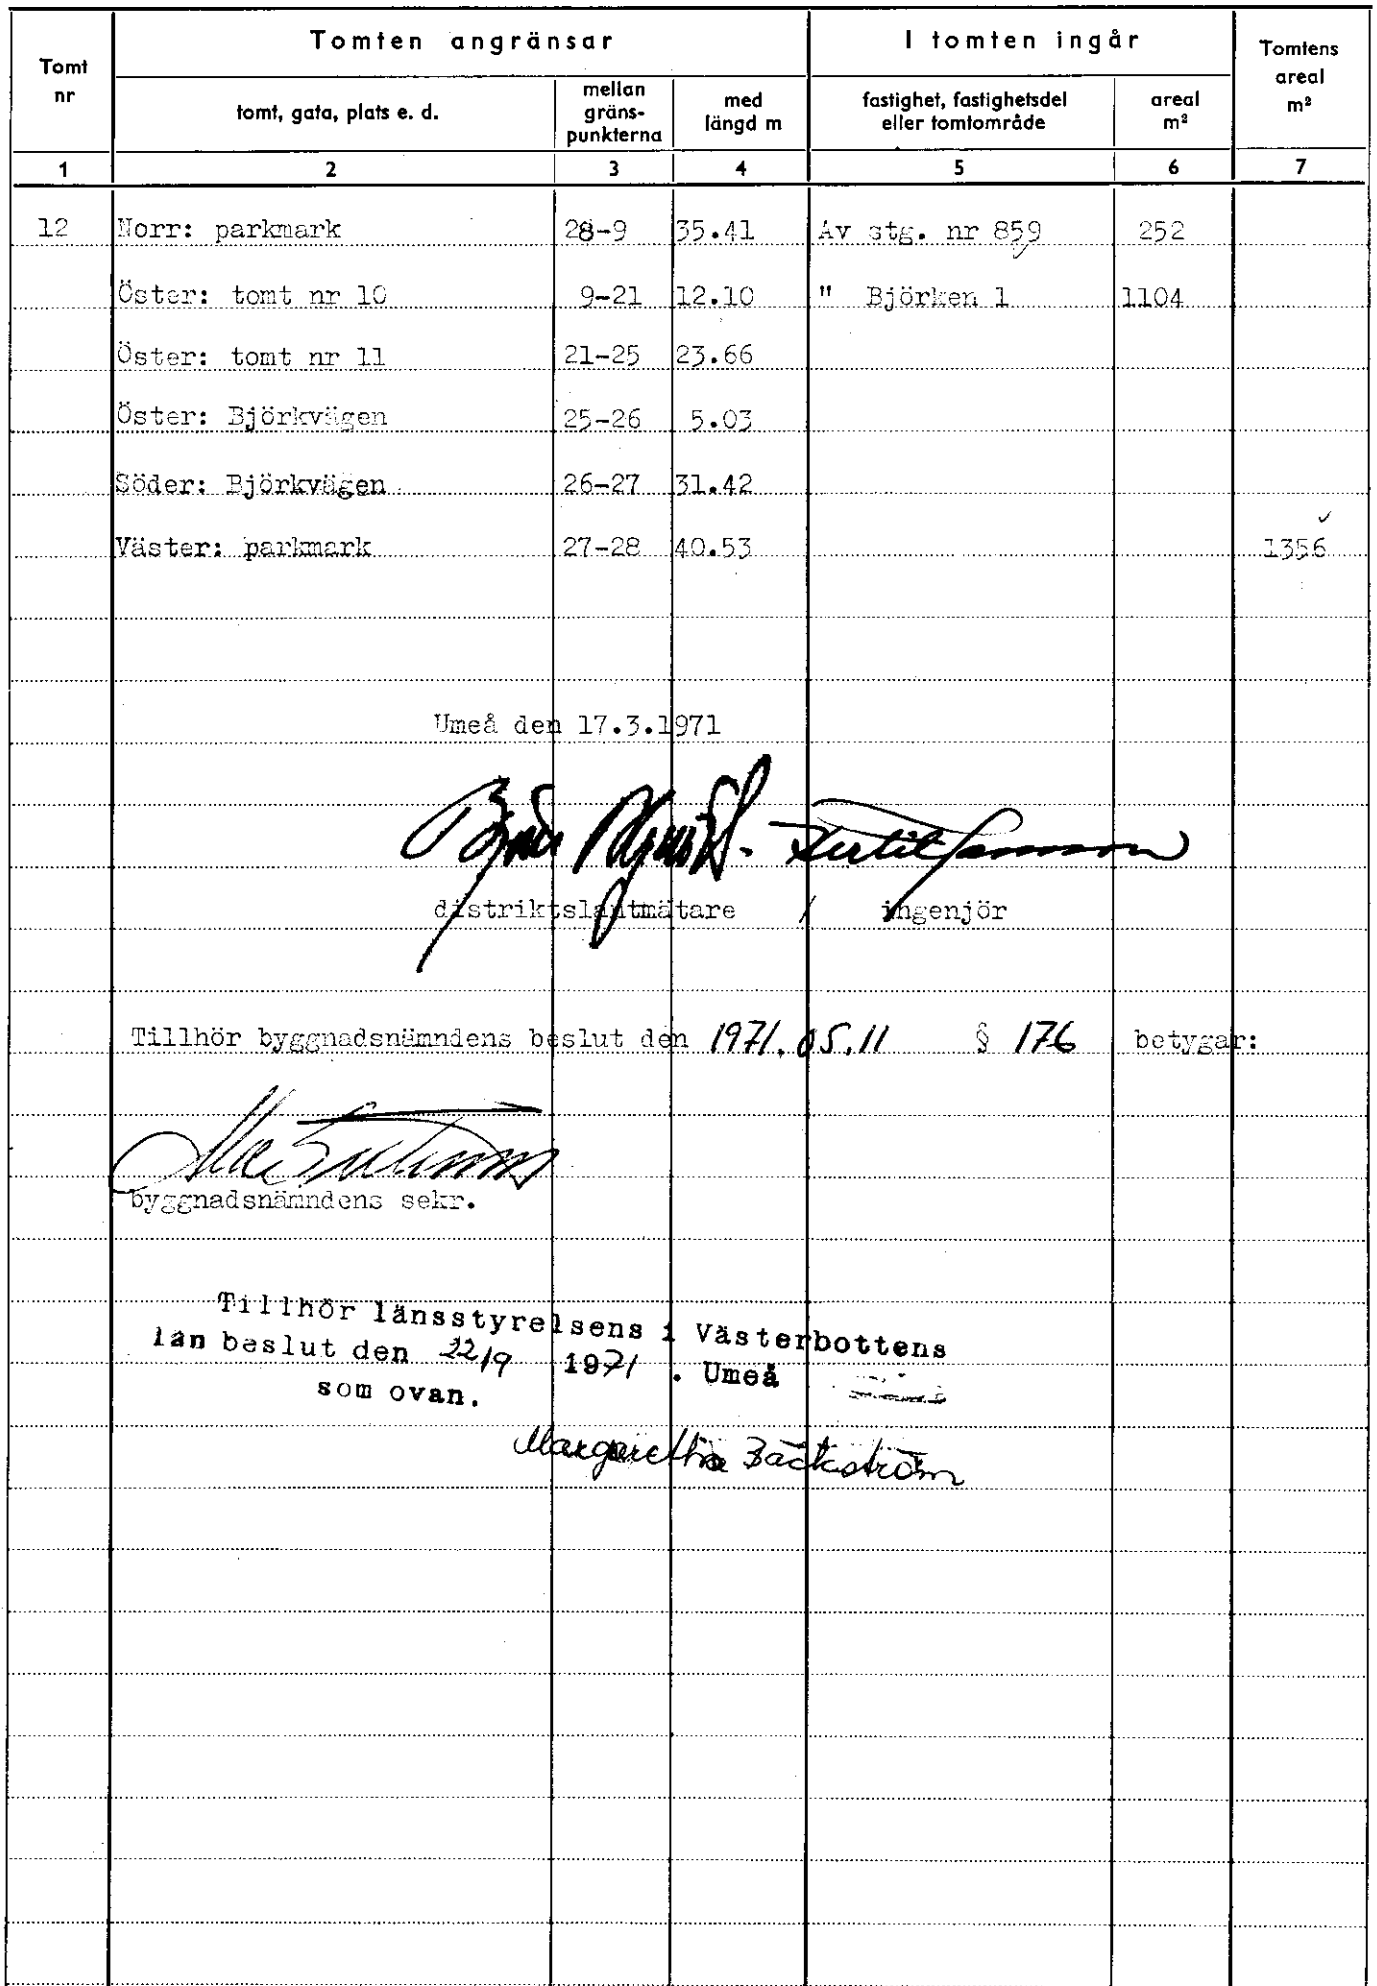 Tomt nr Tomten angränsar I tomten ingår Tomtens areal m²
tomt, gata, plats e. d. mellan gräns-punkterna med längd m fastighet, fastighetsdel eller tomtområde areal m²
1 2 3 4 5 6 7
12 Norr: parkmark 28-9 35.41 Av stg. nr 859 252
Öster: tomt nr 10 9-21 12.10 " Björken 1 1104
Öster: tomt nr 11 21-25 23.66
Öster: Björkvägen 25-26 5.03
Söder: Björkvägen 26-27 31.42
Väster: parkmark 27-28 40.53 1356
Umeå den 17.3.1971
distriktslantmätare / ingenjör
Tillhör byggnadsnämndens beslut den 1971.05.11 § 176 betygar:
byggnadsnämndens sekr.
Tillhör länsstyrelsens i Västerbottens
län beslut den 22/9 1971 . Umeå
som ovan.
Margaretha Bäckström